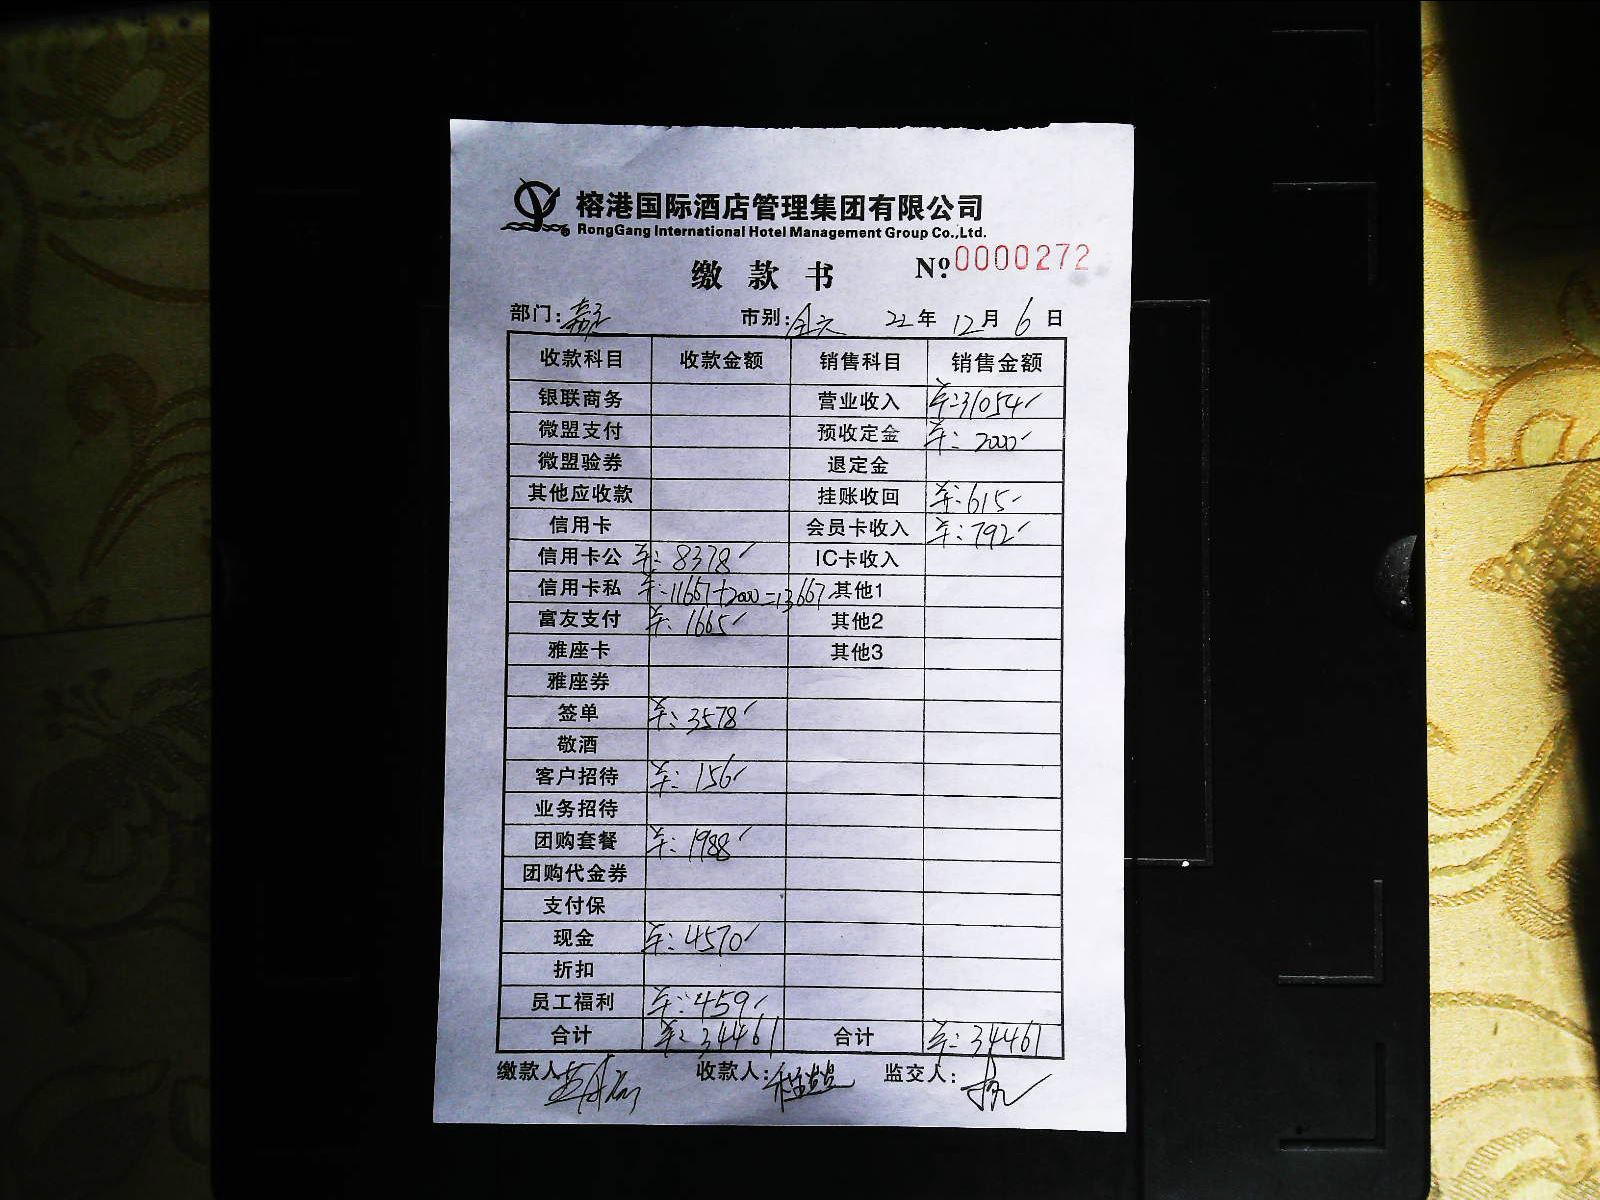 榕港国际酒店管理集团有限公司
RongGang International Hotel Management Group Co.,Ltd.
缴款书 Nº 0000272
部门: 市别: 22年 12月 6日
收款科目 收款金额 销售科目 销售金额
银联商务 营业收入 31054
微盟支付 预收定金 2000
微盟验券 退定金
其他应收款 挂账收回 615
信用卡 会员卡收入 792
信用卡公 8378 IC卡收入
信用卡私 11667+2000=13667 其他1
富友支付 1665 其他2
雅座卡 其他3
雅座券
签单 3578
敬酒
客户招待 156
业务招待
团购套餐 1988
团购代金券
支付保
现金 4570
折扣
员工福利 459
合计 34461 合计 34461
缴款人 收款人: 监交人: